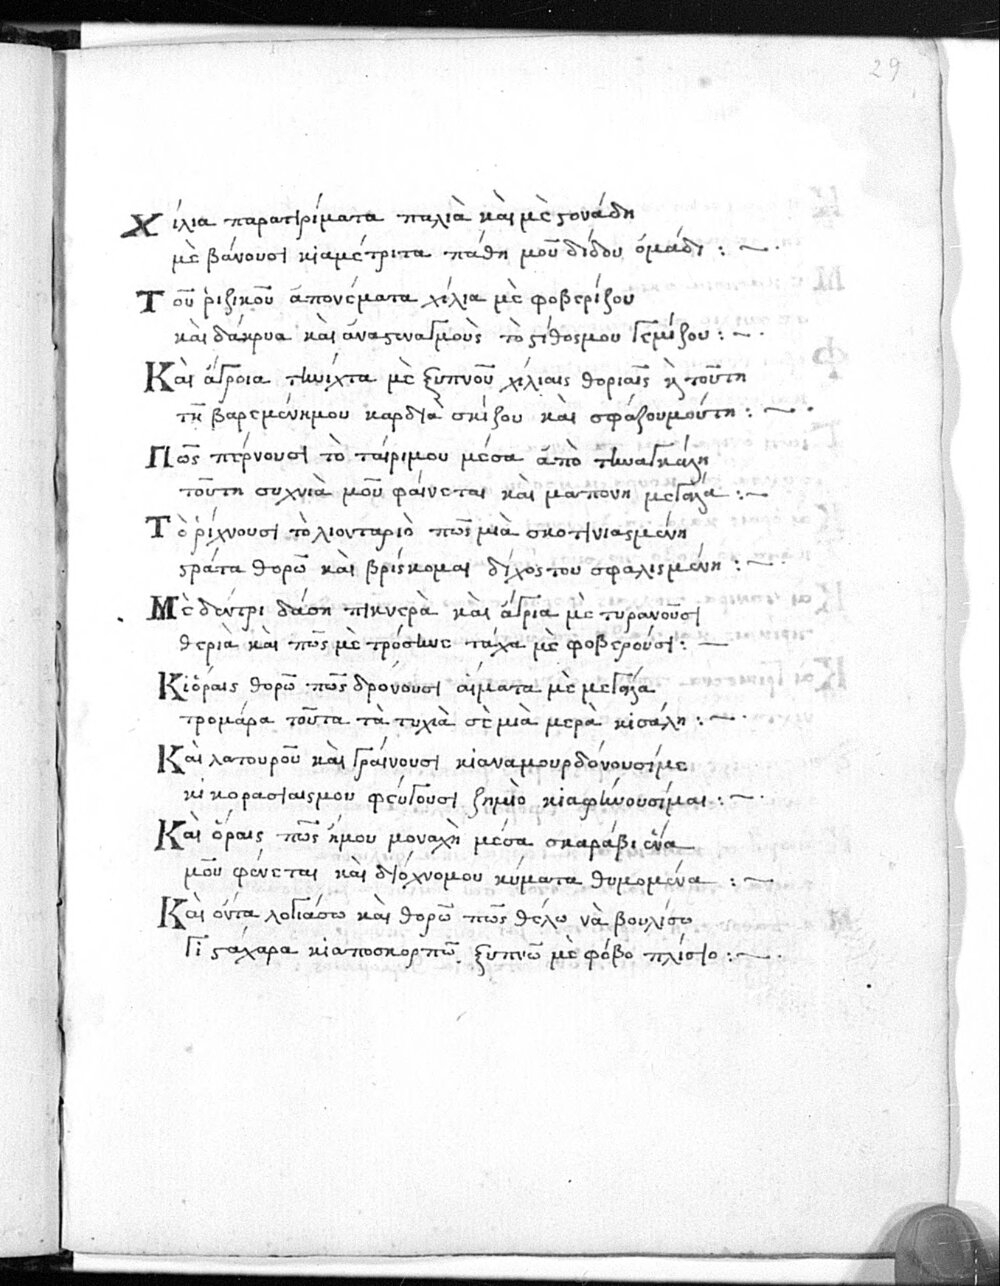 29
Χίλια παρατιρίματα παλιὰ καὶ μὲ ςονάδη
μὲ βάνουσι κιαμέτριτα πάθη μοῦ δίδου ὁμάδι :~
Τοῦ ῥιζικοῦ ἀπονέματα χίλια μὲ φοβερίζου
καὶ δάκρυα καὶ ἀναςεναγμοὺς τὸ ςίθοςμου γεμίζου :~
Καὶ ἄγροια τὴνίχτα μὲ ξυπνοῦ χίλιαις θοριαῖς κὶ τούτη
τὴ βαρεμένημου καρδιὰ σκίζου καὶ σφάζουμούτη :~
Πῶς πέρνουσι τὸ ταίριμου μέσα ἀπὸ τὴναγκάλη
τούτη συχνιὰ μοῦ φαίνεται καὶ μαπονη μεγάλα :~
Τὸ ῥίχνουσι τὸ λιονταριὸ πῶς μιὰ σκοτινιαςμένη
ςράτα θορῶ καὶ βρίςκομαι δίχοςτου σφαλιςμένη :~
Μὲ δέντρι δάση πικνερὰ καὶ ἄγρια μὲ τυρανοῦσι
θεριὰ καὶ πῶς μὲ τρόσινε τάχα μὲ φοβερούσι :~
Κιὅραις θορῶ πῶς δρόνουσι αἵματα μὲ μεγάλα
τρομάρα τοῦτα τὰ τυχιὰ σὲ μιὰ μερὰ κισάλη :~
Καὶ λατουροῦ καὶ γραίνουσι κιαναμουρδόνουσίμε
κὶ κορασιαιςμου φεύγουσι ζημιὸ κιαφίνουσίμαι :~
Καὶ ὅραις πῶς ἤμου μοναχὴ μέσα σκαράβι ἕνα
μοῦ φένεται καὶ διόχνομου κύματα θυμομένα :~
Καὶ ὅντα λογιάσω καὶ θορῶ πῶς θέλω νὰ βουλίσω
γὶ ςάχαρα κιαποσκορπῶ ξυπνῶ μὲ φόβο πλίσιο :~